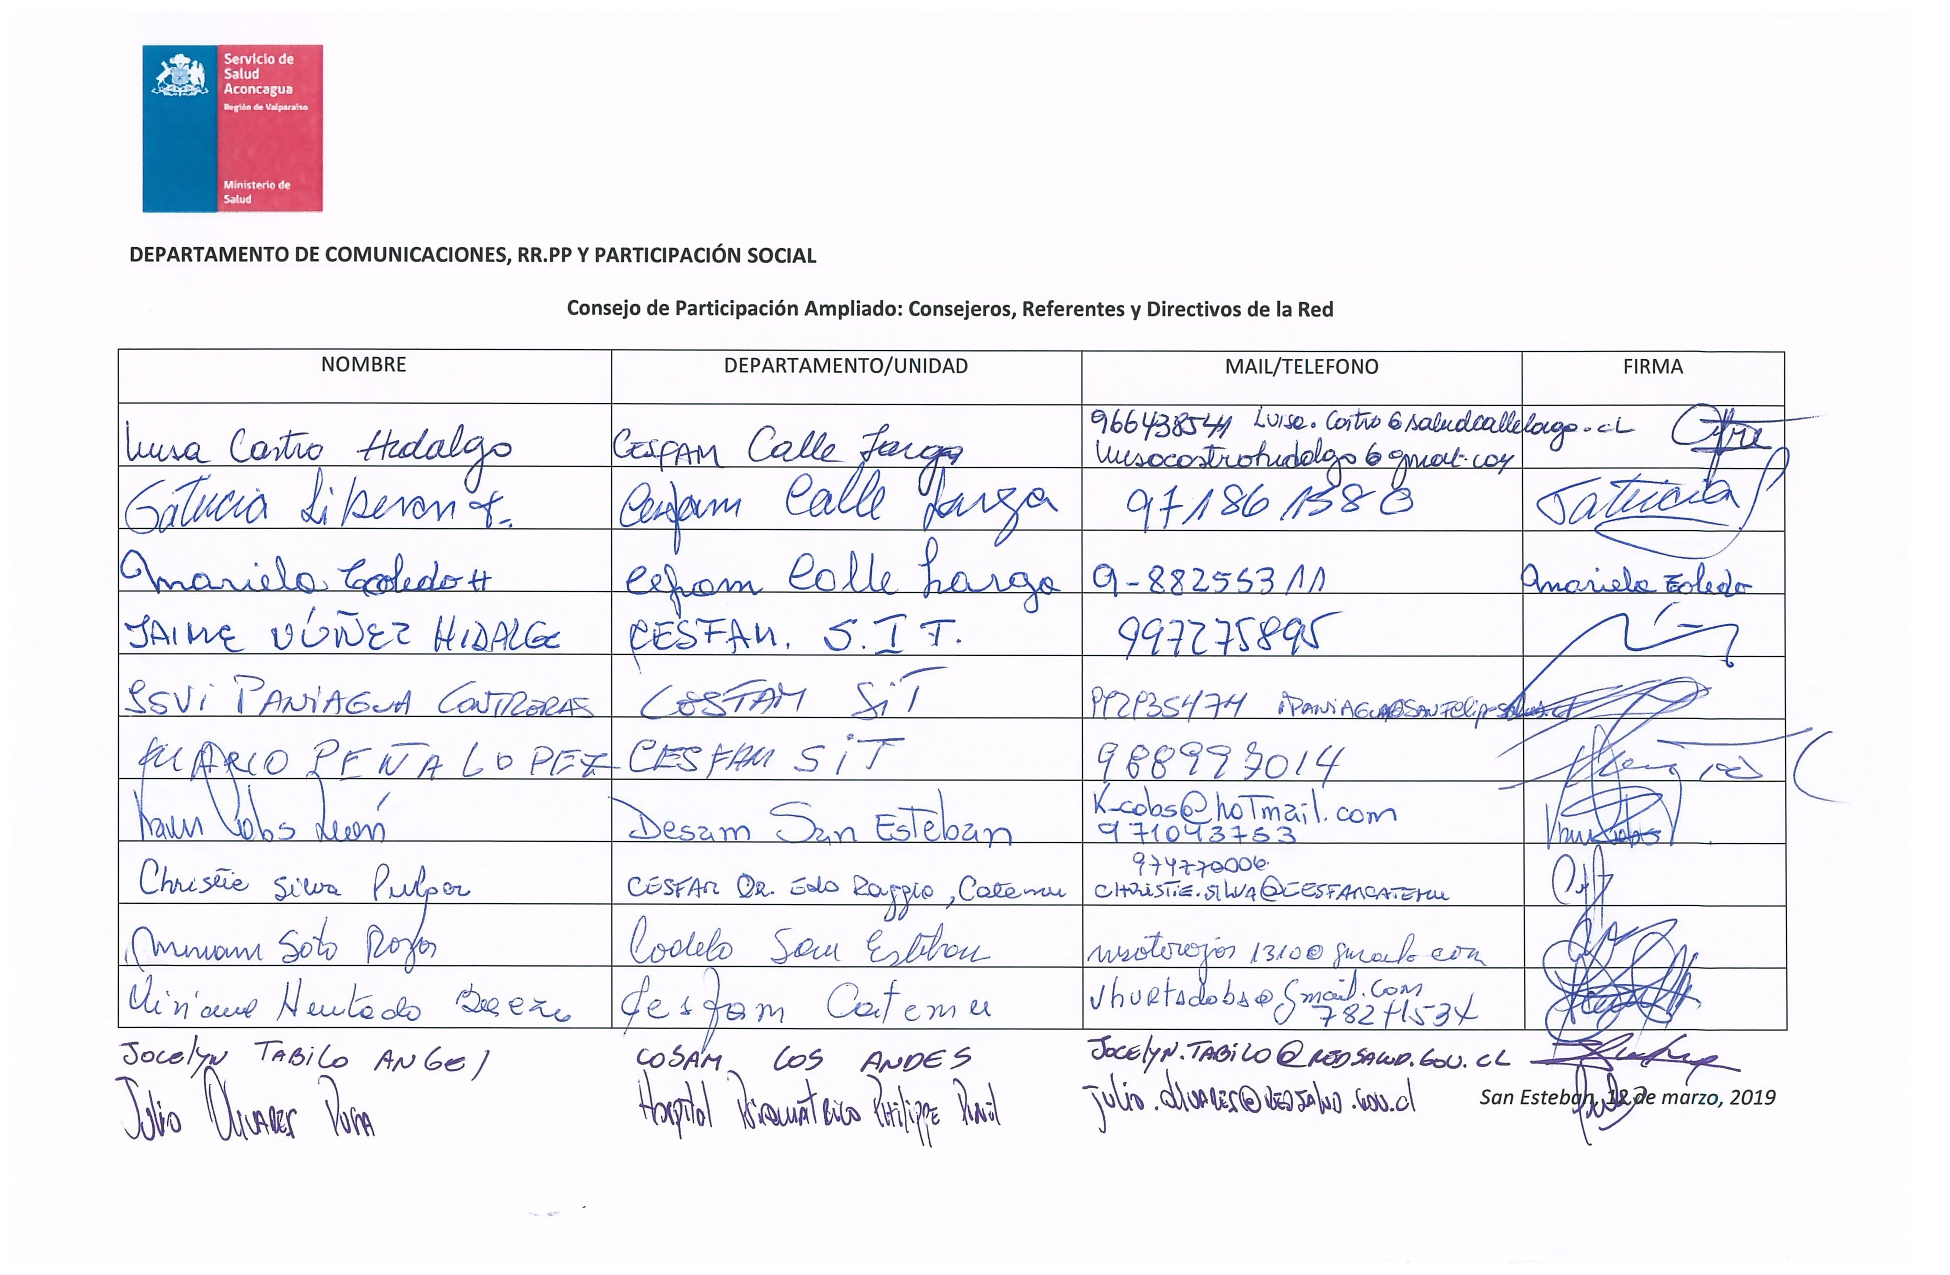 Servicio de
Salud
Aconcagua
Región de Valparaíso
Ministerio de
Salud
DEPARTAMENTO DE COMUNICACIONES, RR.PP Y PARTICIPACIÓN SOCIAL
Consejo de Participación Ampliado: Consejeros, Referentes y Directivos de la Red
NOMBRE DEPARTAMENTO/UNIDAD MAIL/TELEFONO FIRMA
966438541 Luisa.Castro@saludcallelargo.cl
Luisa Castro Hidalgo CESFAM Calle Larga
luisacastrohidalgo@gmail.com
Patricia Cesfam Calle Larga 971861380 Patricia
Mariela Toledo H Cesfam Calle Larga 9-88255311 Mariela Toledo
JAIME NÚÑEZ HIDALGO CESFAM. S.I T. 997275895
PANIAGUA CONTRERAS CESFAM SiT
MARIO PEÑA LOPEZ CESFAM SiT 988997014
K-cobs@hotmail.com
Karen Cobs León Desam San Esteban
971043753
974770006
Christie Silva Pulgar CESFAM DR. Edo Raggio, Catemu
CHRISTIE.SILVA@CESFAMCATEMU
Miriam Soto Rojas San Esteban msotorojos1310@gmail.com
vhurtadobs@gmail.com
Hurtado Cesfam Catemu
78271534
JOCELYN TABILO ANGEL COSAM LOS ANDES JOCELYN.TABILO@REDSALUD.GOV.CL
JULIO OLIVARES Hospital Psiquiatrico Philippe Pinel julio.olivares@REDSALUD.GOV.cl
San Esteban, 12 de marzo, 2019